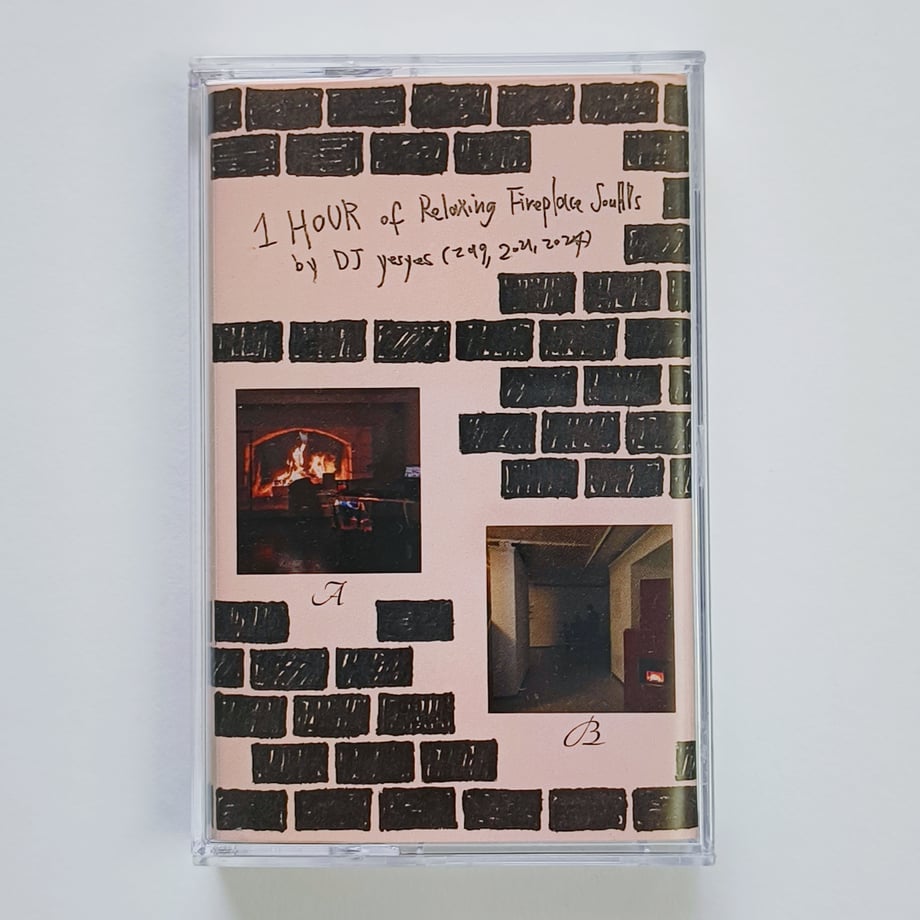 1 HOUR of Relaxing Fireplace Sounds
by DJ yesyes (2019, 2021, 2024)
A
B